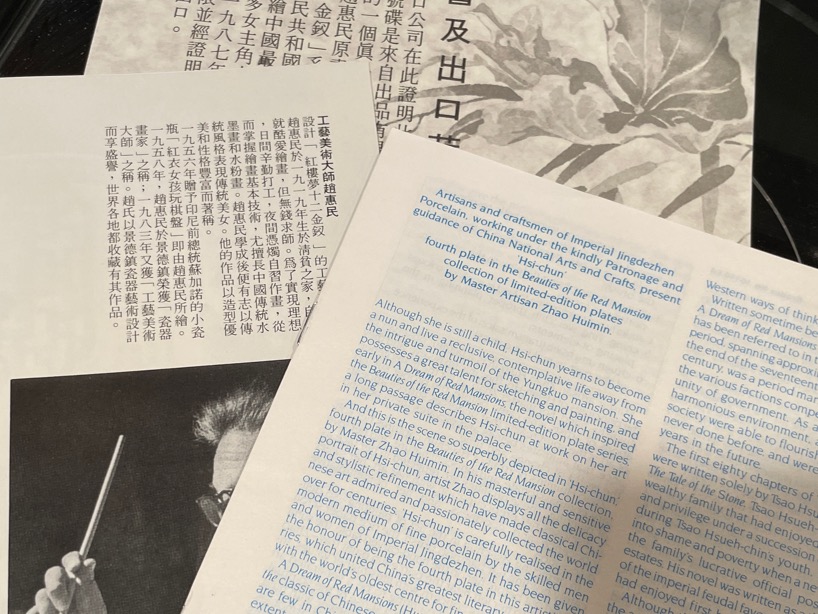 及出口
公司在此證明
號碟是來自出品有
的一個眞
趙惠民原
民共和國
金釵」系
繪中國最
多女主角,
一九八七年
限並經證明
口。
工藝美術大師趙惠民
設計「紅樓夢十二金釵」的工
趙惠民於一九一九年生於清貧之家,自
就酷愛繪畫,但無錢求師。爲了實現理想
,日間辛勤打工,夜間憑燭自習作畫,從
而掌握繪畫基本技術,尤擅長中國傳統水
墨畫和水粉畫。趙惠民學成後便有志以傳
統風格表現傳統美女。他的作品以造型優
美和性格豐富而著稱。
一九五六年贈予印尼前總統蘇加諾的小瓷
瓶「紅衣女孩玩棋盤」即由趙惠民所繪。
一九五八年,趙惠民於景德鎮榮獲「瓷器
畫家」之稱;一九八三年又獲「工藝美術
大師」之稱。趙氏以景德鎮瓷器藝術設計
而享盛譽,世界各地都收藏有其作品。
Artisans and craftsmen of Imperial Jingdezhen
Porcelain, working under the kindly Patronage and
guidance of China National Arts and Crafts, present
'Hsi-chun'
fourth plate in the Beauties of the Red Mansion
collection of limited-edition plates
by Master Artisan Zhao Huimin.
Although she is still a child, Hsi-chun yearns to become
a nun and live a reclusive, contemplative life away from
the intrigue and turmoil of the Yungkuo mansion. She
possesses a great talent for sketching and painting, and
early in A Dream of Red Mansions, the novel which inspired
the Beauties of the Red Mansion limited-edition plate series,
a long passage describes Hsi-chun at work on her art
in her private suite in the palace.
And this is the scene so superbly depicted in 'Hsi-chun',
fourth plate in the Beauties of the Red Mansion collection,
by Master Zhao Huimin. In his masterful and sensitive
portrait of Hsi-chun, artist Zhao displays all the delicacy
and stylistic refinement which have made classical Chi-
nese art admired and passionately collected the world
over for centuries. 'Hsi-chun' is carefully realised in the
modern medium of fine porcelain by the skilled men
and women of Imperial Jingdezhen. It has been given
the honour of being the fourth plate in this artistic
ries, which united China's greatest literary
with the world's oldest centre for fine
A Dream of Red Mansions (Hu
the classic of Chinese
are few in Chin
extent
Western ways of think
Written sometime be
A Dream of Red Mansions
has been referred to in t
period, spanning approxi
the end of the seventeent
century, was a period mar
the various factions compe
unity of government. As a
harmonious environment,
society were able to flourish
never done before, and were
years in the future.
The first eighty chapters of
were written solely by Tsao Hsu
The Tale of the Stone, Tsao Hsueh-
wealthy family that had enjoyed
and privilege under a succession
during Tsao Hsueh-chin's youth,
into shame and poverty when a ne
the family's lucrative official pos
estates. His novel was written as a
of the imperial feudal
had enjoyed first
Although